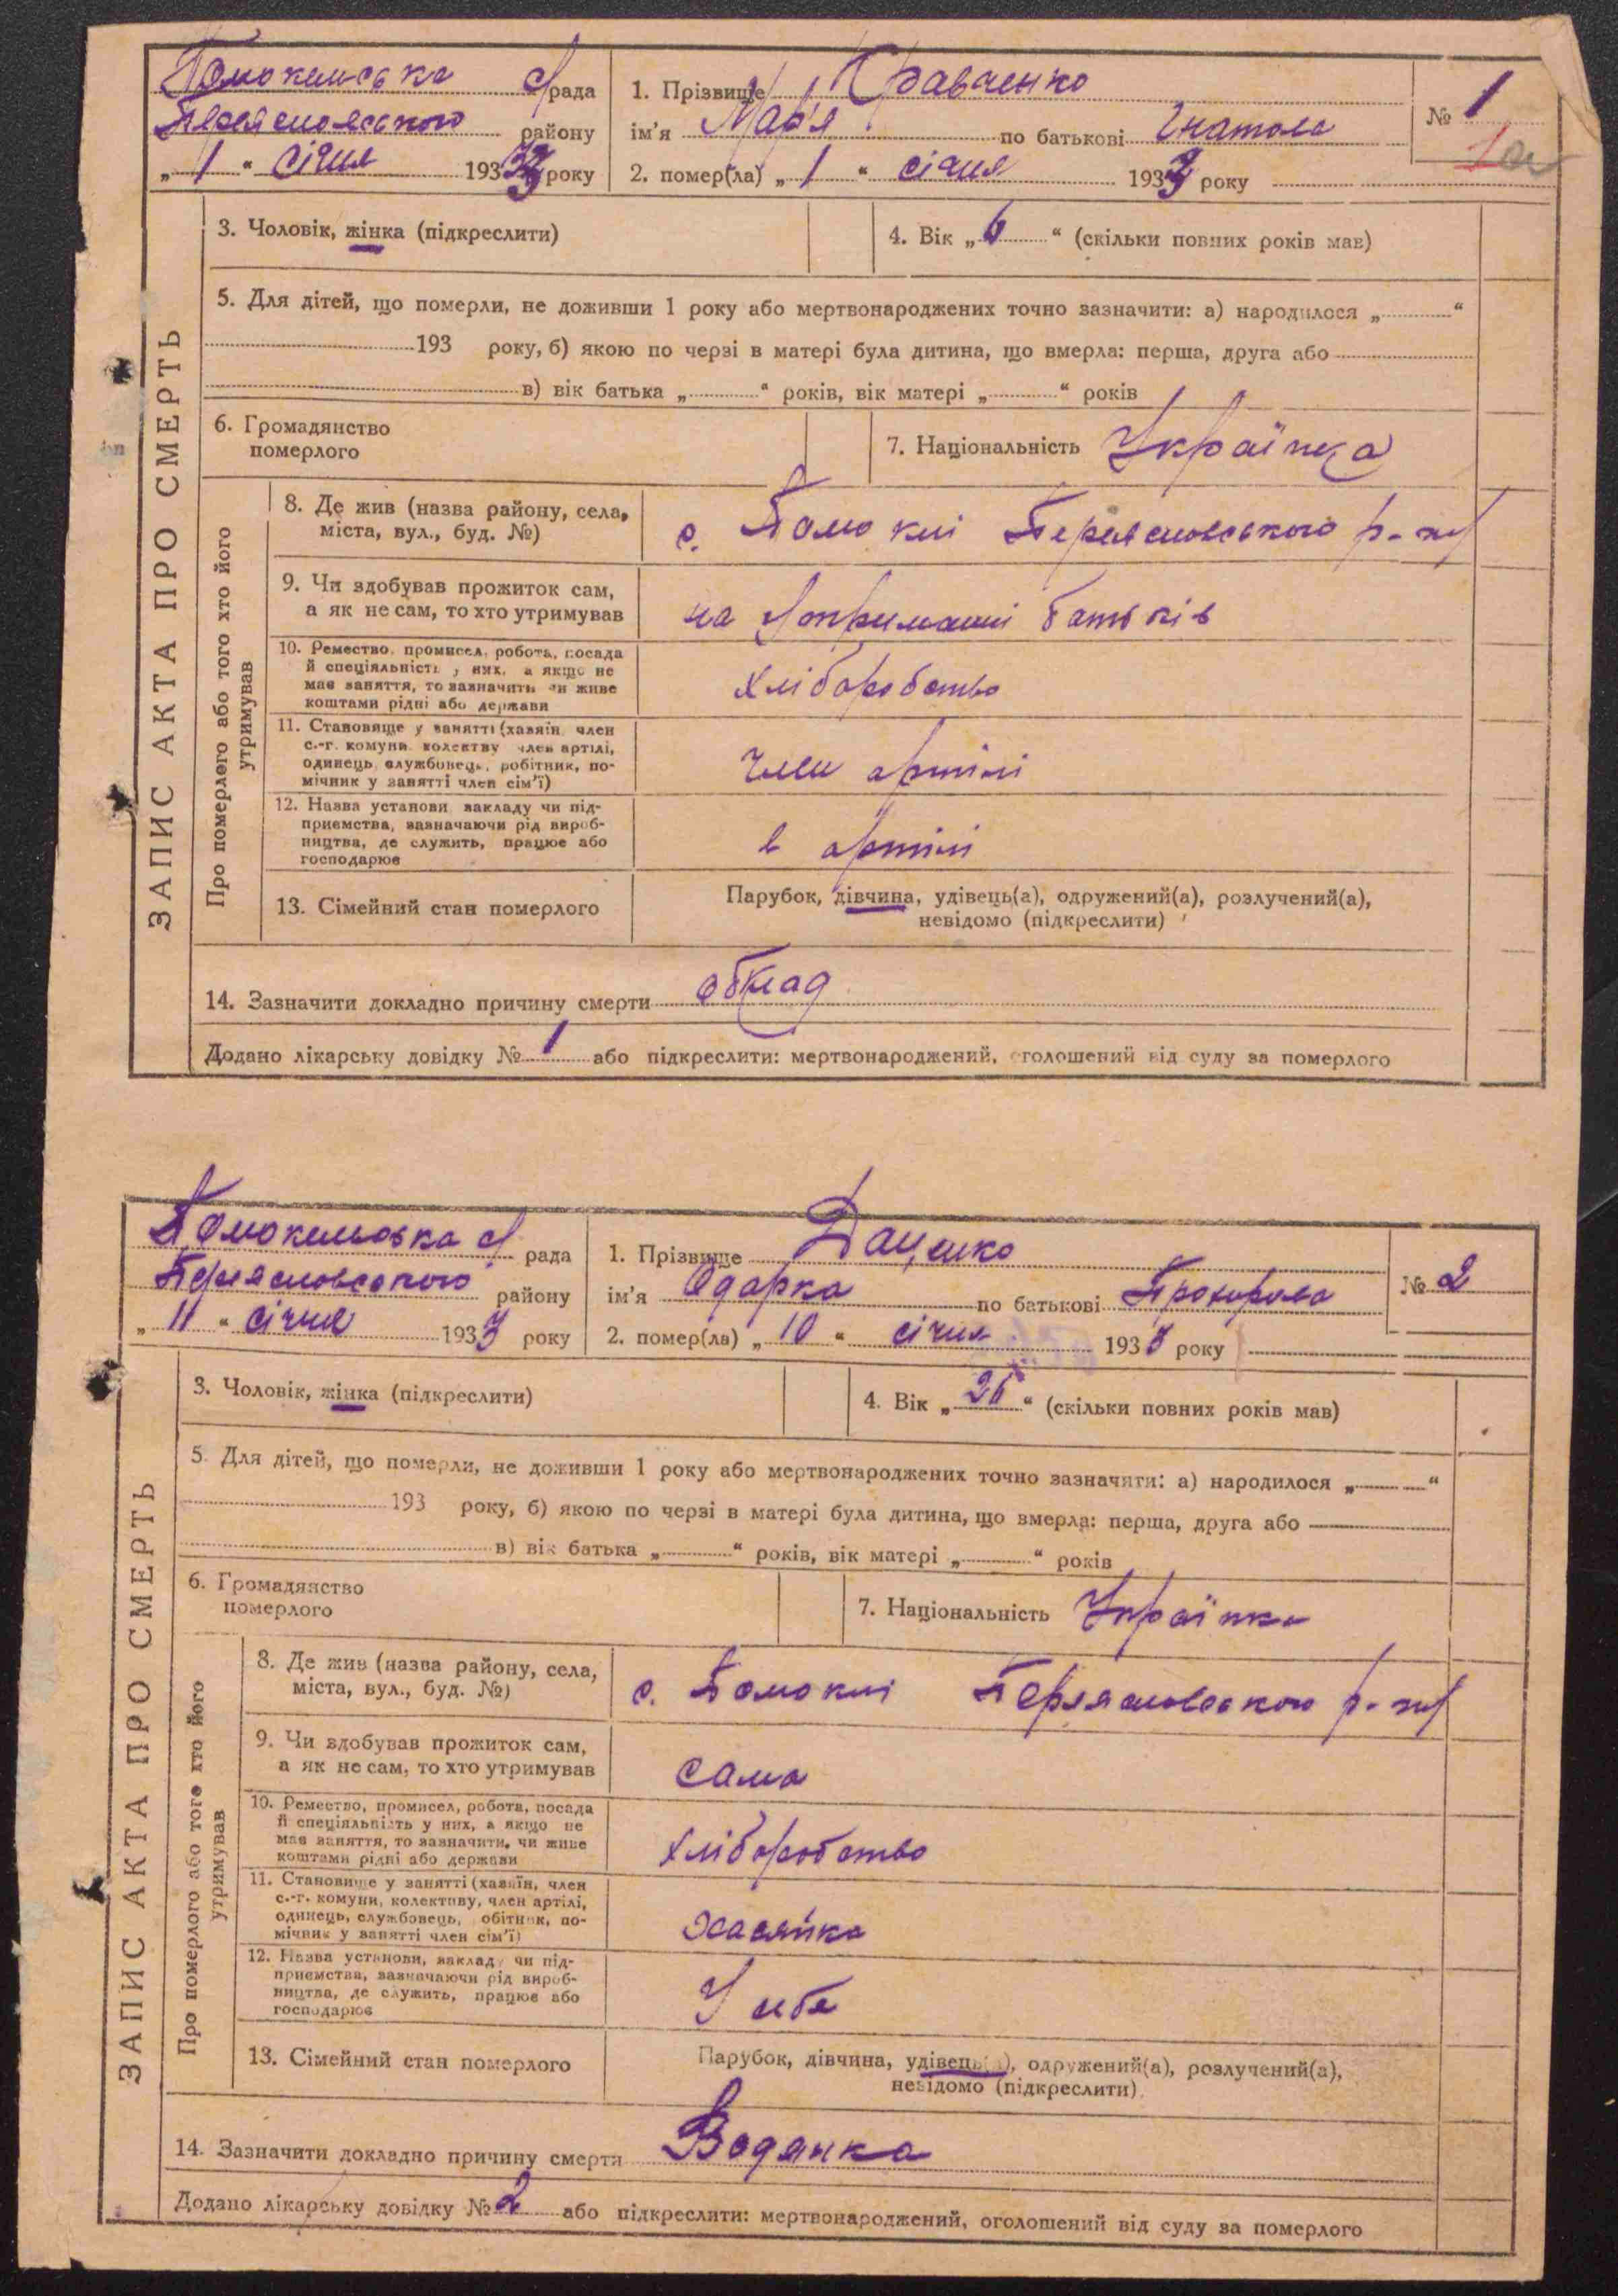 Помоклиська с/рада
Переяславського району
„ 1 “ січня 1933 року
1. Прізвище Кравченко
ім'я Мар'я по батькові Гнатова
2. помер(ла) „ 1 “ січня 1933 року
№ 1
ЗАПИС АКТА ПРО СМЕРТЬ
3. Чоловік, жінка (підкреслити)
4. Вік „ 6 “ (скільки повних років мав)
5. Для дітей, що померли, не доживши 1 року або мертвонароджених точно зазначити: а) народилося „ “
193 року, б) якою по черзі в матері була дитина, що вмерла: перша, друга або
в) вік батька „ “ років, вік матері „ “ років
6. Громадянство
померлого
7. Національність Українка
Про померлого або того хто його
утримував
8. Де жив (назва району, села,
міста, вул., буд. №)
с. Помоклі Переяславського р-ну
9. Чи здобував прожиток сам,
а як не сам, то хто утримував
на утриманні батьків
10. Ремество, промисел, робота, посада
й спеціяльність у них, а якщо не
має заняття, то зазначить чи живе
коштами рідні або держави
хліборобство
11. Становище у занятті (хазяїн, член
с.-г. комуни, колективу член артілі,
одинець, службовець, робітник, по-
мічник у занятті член сім'ї)
член артілі
12. Назва установи, закладу чи під-
приємства, зазначаючи рід вироб-
ництва, де служить, працює або
господарює
в артілі
13. Сімейний стан померлого
Парубок, дівчина, удівець(а), одружений(а), розлучений(а),
невідомо (підкреслити)
14. Зазначити докладно причину смерти обклад
Додано лікарську довідку № 1 або підкреслити: мертвонароджений, оголошений від суду за померлого
Помоклиська с/рада
Переяславського району
„ 11 “ січня 1933 року
1. Прізвище Даценко
ім'я Одарка по батькові Прохорова
2. помер(ла) „ 10 “ січня 1933 року
№ 2
ЗАПИС АКТА ПРО СМЕРТЬ
3. Чоловік, жінка (підкреслити)
4. Вік „ 26 “ (скільки повних років мав)
5. Для дітей, що померли, не доживши 1 року або мертвонароджених точно зазначити: а) народилося „ “
193 року, б) якою по черзі в матері була дитина, що вмерла: перша, друга або
в) вік батька „ “ років, вік матері „ “ років
6. Громадянство
померлого
7. Національність Українка
Про померлого або того хто його
утримував
8. Де жив (назва району, села,
міста, вул., буд. №)
с. Помоклі Переяславського р-ну
9. Чи здобував прожиток сам,
а як не сам, то хто утримував
сама
10. Ремество, промисел, робота, посада
й спеціяльність у них, а якщо не
має заняття, то зазначити, чи живе
коштами рідні або держави
хліборобство
11. Становище у занятті (хазяїн, член
с.-г. комуни, колективу, член артілі,
одинець, службовець, робітник, по-
мічник у занятті член сім'ї)
Хазяйка
12. Назва установи, закладу чи під-
приємства, зазначаючи рід вироб-
ництва, де служить, працює або
господарює
У себе
13. Сімейний стан померлого
Парубок, дівчина, удівець(а), одружений(а), розлучений(а),
невідомо (підкреслити)
14. Зазначити докладно причину смерти Водянка
Додано лікарську довідку № 2 або підкреслити: мертвонароджений, оголошений від суду за померлого